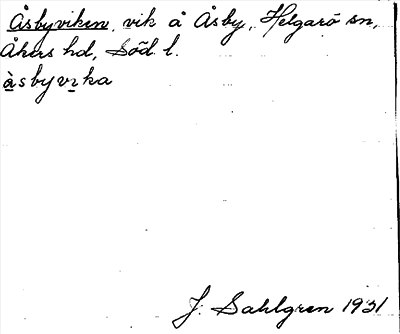 Åsbyviken, vik å Åsby, Helgarö sn,
Åkers hd, Söd l.
àsbyvıka
J. Sahlgren 1931